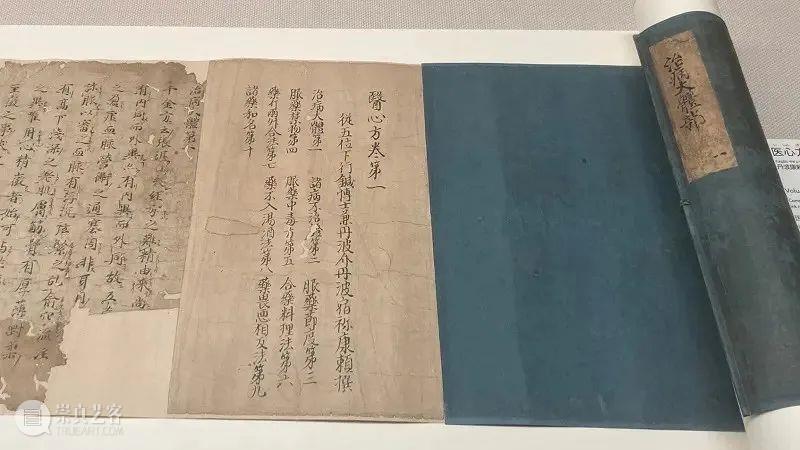 治病大體部 一
医心方
丹波康頼
Volu
醫心方卷第一
從五位下行鍼博士兼丹波介丹波宿祢康頼撰
治病大體第一 諸病不治證第二 服藥節度第三
服藥禁物第四 服藥中毒方第五 合藥料理法第六
藥斤兩升合法第七 藥不入湯酒法第八 藥畏惡相反法第九
諸藥和名第十
治病大體第一
千金方云張湛曰夫經方之難精由來尚
有内同而外異亦有内異而外同故五
之盈虚血脉榮衛之通塞固非耳目
診脉以審之而脉有浮沉弦緊之乱俞穴流注
有高下淺深之差肌膚筋骨有厚薄剛柔
之異唯用心精微者始可与言
至微之事
崇真艺客
TRUEART.COM